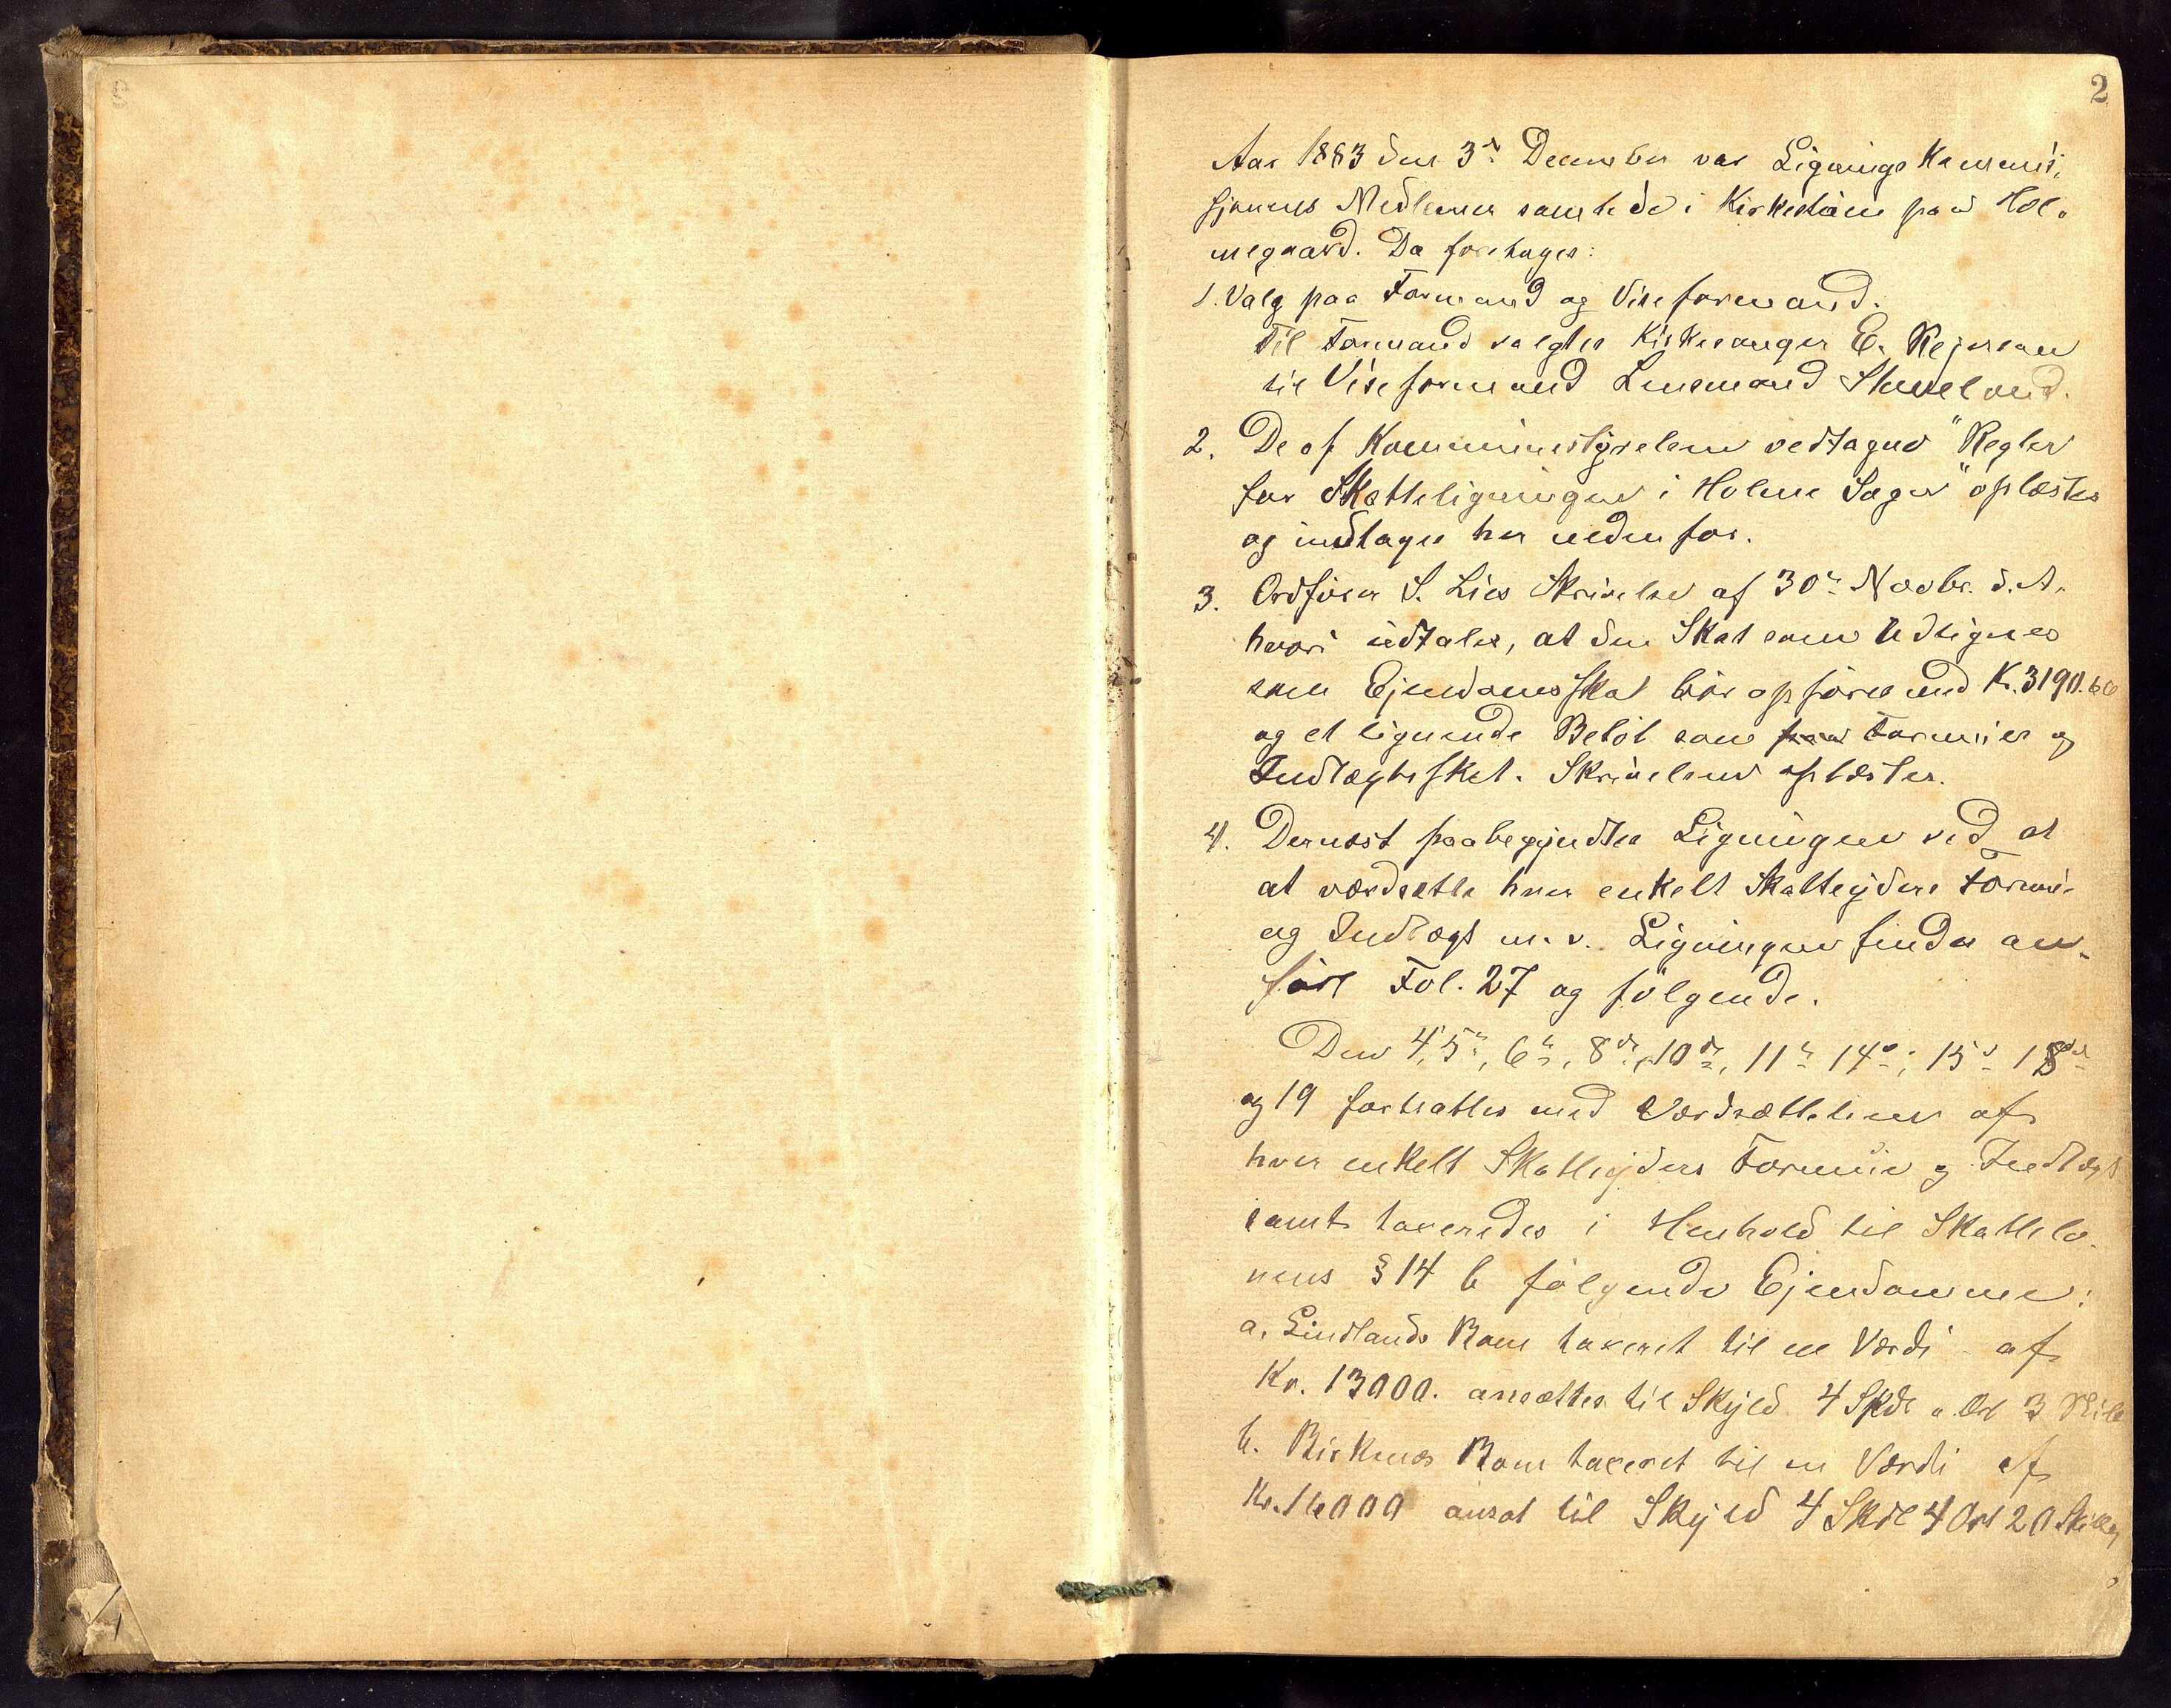 2
Aar 1883 den 3d. December var Ligningskommis,
sjonens Medlemmer samlede i Kirkestuen paa Hol,
megaard. Da foretages:
1. Valg paa Formand og Viseformand.
Til Formand valgtes Kirkesanger E. Rejersen
til Viseformand Lensmand Stuveland.
2. De af Kommunestyrelsen vedtagne "Regler
for Skatteligningen i Holme Sogn" oplæstes
og indtages her nedenfor.
3. Ordfører S. Lies Skrivelse af 30te Novbr. d. A.
hvori udtales, at den Skat som udlignes
som Ejendomsskat bør opføres med Kr. 3190.60
og et lignende Beløb som paa Formues og
Indtægtsskat. Skrivelsen oplæstes.
4. Dernæst paabegyndtes Ligningen ved at
at værdsætte hver enkelt Skatteyders Formue
og Indtægt m. v. Ligningen findes an-
ført Fol. 27 og følgende.
Den 4, 5te, 6te, 8de, 10de, 11te 14de, 15de 18de
og 19 fortsattes med Værdsættelsen af
hver enkelt Skatteyders Formue og Indtægt
samt taxeredes i Henhold til Skattelo-
vens § 14 b følgende Ejendomme:
a. Lindlands Brug taxeret til en Værdi af
Kr. 13000. ansættes til Skyld 4 Spdl " Ort 3 Skill
b. Birknes Brug taxeret til en Værdi af
Kr. 16000 ansat til Skyld 4 Skdl 4 Ort 20 Skilling